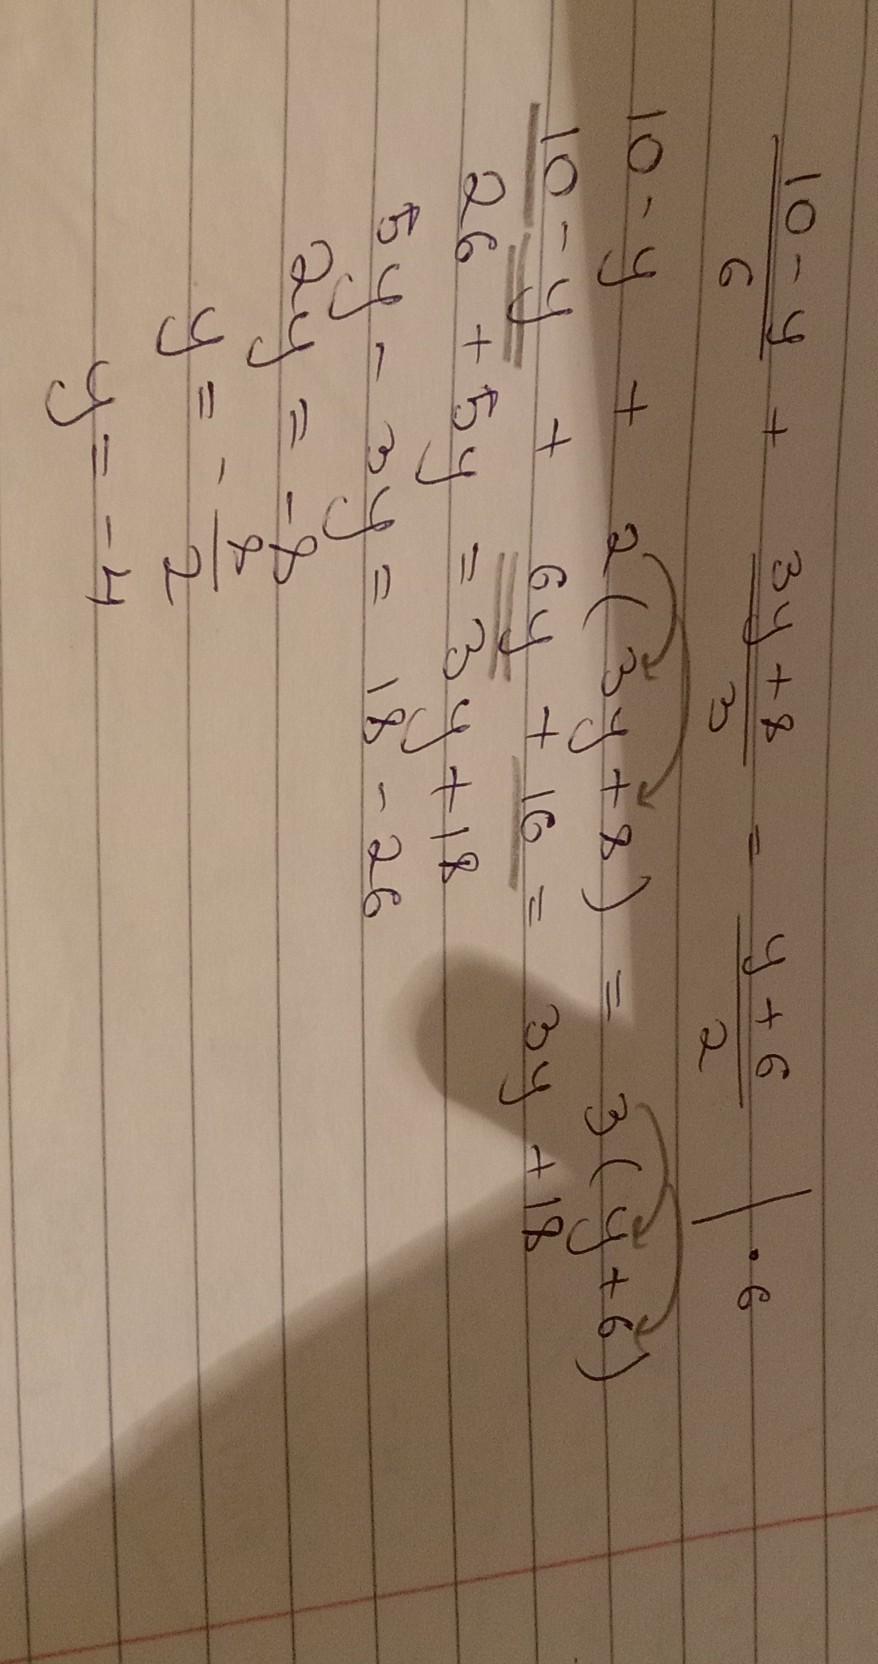 (10-y)/6 + (3y+8)/3 = (y+6)/2 | ·6
10-y + 2(3y+8) = 3(y+6)
10-y + 6y+16 = 3y+18
26+5y = 3y+18
5y-3y = 18-26
2y = -8
y = -8/2
y = -4